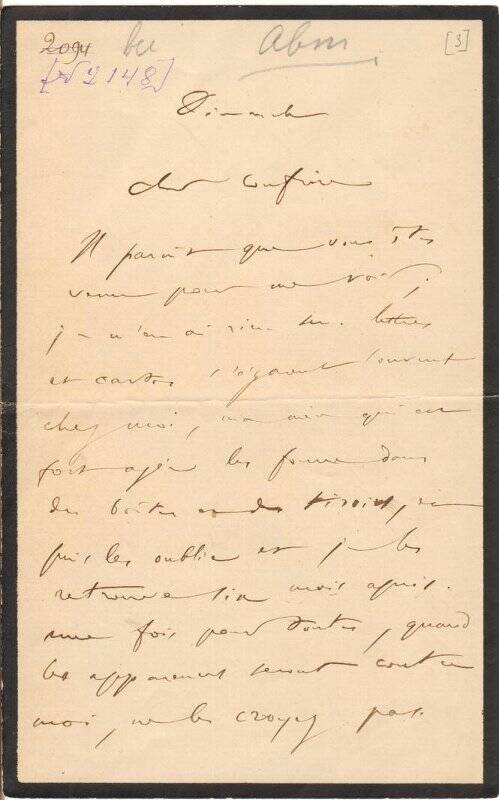 2094 Abm [3]
[N 2148]
Dimanche
cher confrère
Il paraît que vous êtes
venu pour me voir,
je n'en ai rien su. lettres
et cartes s'égarent souvent
chez moi, ma mère qui est
fort agée les fourre dans
des boîtes des tiroirs,
puis les oublie et je les
retrouve six mois après.
une fois pour toutes, quand
les apparences seront contre
moi, ne les croyez pas.